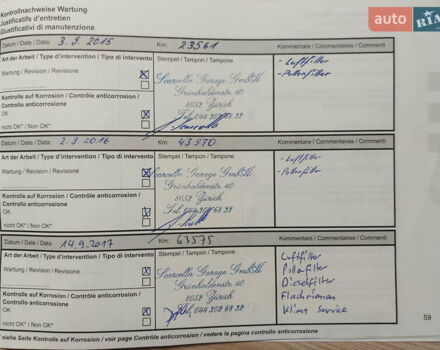 Kontrollnachweise Wartung
Justificatifs d'entretien
Giustificativi di manutenzione
auto RIA
Datum / Date / Data: 3.5.2015 Km: 23561 Kommentare / Commentaires / Commenti
Art der Arbeit / Type d'intervention / Tipo di intervento Stempel / Tampon / Tampone - Luftfilter
Wartung / Revision / Revisione X Scarcella Garage GmbH - Pollenfilter
Grünhaldenstr. 40
Kontrolle auf Korrosion / Contrôle anticorrosion / Controllo anticorrosione 8052 Zürich
OK X Tel. 044 302 68 32
nicht OK* / Non OK*
Datum / Date / Data: 2.3.2016 Km: 43970 Kommentare / Commentaires / Commenti
Art der Arbeit / Type d'intervention / Tipo di intervento Stempel / Tampon / Tampone - Luftfilter
Wartung / Revision / Revisione X Scarcella Garage GmbH - Pollenfilter
Grünhaldenstr. 40
Kontrolle auf Korrosion / Contrôle anticorrosion / Controllo anticorrosione 8052 Zürich
OK X Tel. 044 302 68 32
nicht OK* / Non OK*
Datum / Date / Data: 14.9.2017 Km: 63575 Kommentare / Commentaires / Commenti
Art der Arbeit / Type d'intervention / Tipo di intervento Stempel / Tampon / Tampone Luftfilter
Wartung / Revision / Revisione X Scarcella Garage GmbH Pollenfilter
Grünhaldenstr. 40 Dieselfilter
Kontrolle auf Korrosion / Contrôle anticorrosion / Controllo anticorrosione 8052 Zürich Flachriemen
OK X Tel. 044 302 68 32 Klima Service
nicht OK* / Non OK*
59
*siehe Seite Kontrolle auf Korrosion / voir page Contrôle anticorrosion / vedere la pagina controllo anticorrosione